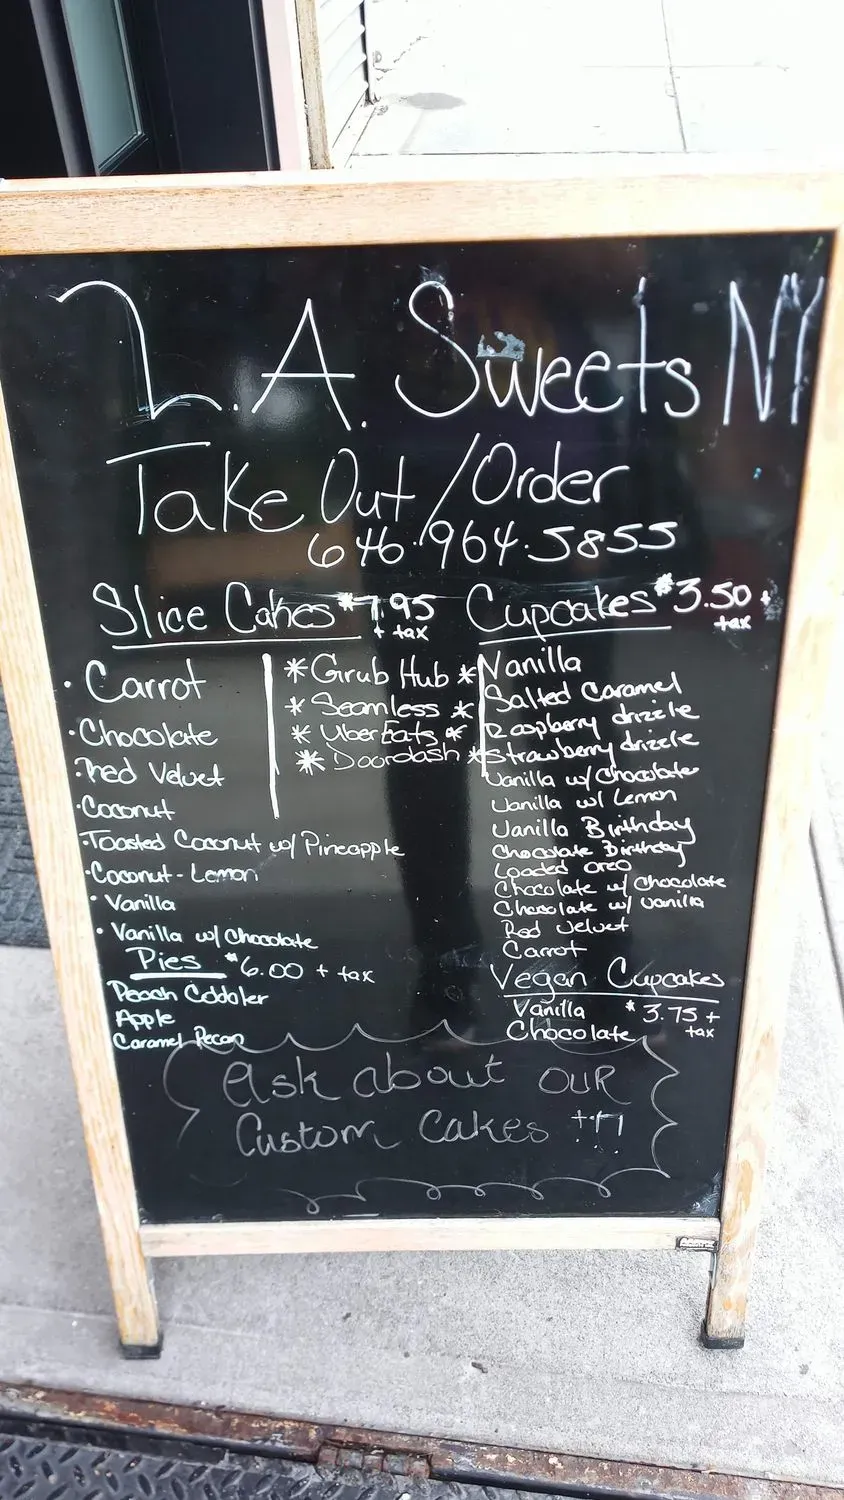 L.A. Sweets NY
Take Out/Order
646.964.5855
Slice Cakes $7.95
+ tax
• Carrot
• Chocolate
• Red Velvet
• Coconut
• Toasted Coconut w/ Pineapple
• Coconut - Lemon
• Vanilla
• Vanilla w/ Chocolate
Pies $6.00 + tax
Peach Cobbler
Apple
Caramel Pecan
* Grub Hub *
* Seamless *
* UberEats *
* Doordash *
Cupcakes $3.50 +
tax
Vanilla
Salted Caramel
Raspberry drizzle
Strawberry drizzle
Vanilla w/ Chocolate
Vanilla w/ Lemon
Vanilla Birthday
Chocolate Birthday
Loaded Oreo
Chocolate w/ Chocolate
Chocolate w/ Vanilla
Red Velvet
Carrot
Vegan Cupcakes
Vanilla $3.75 +
Chocolate tax
Ask about our
Custom Cakes !!!